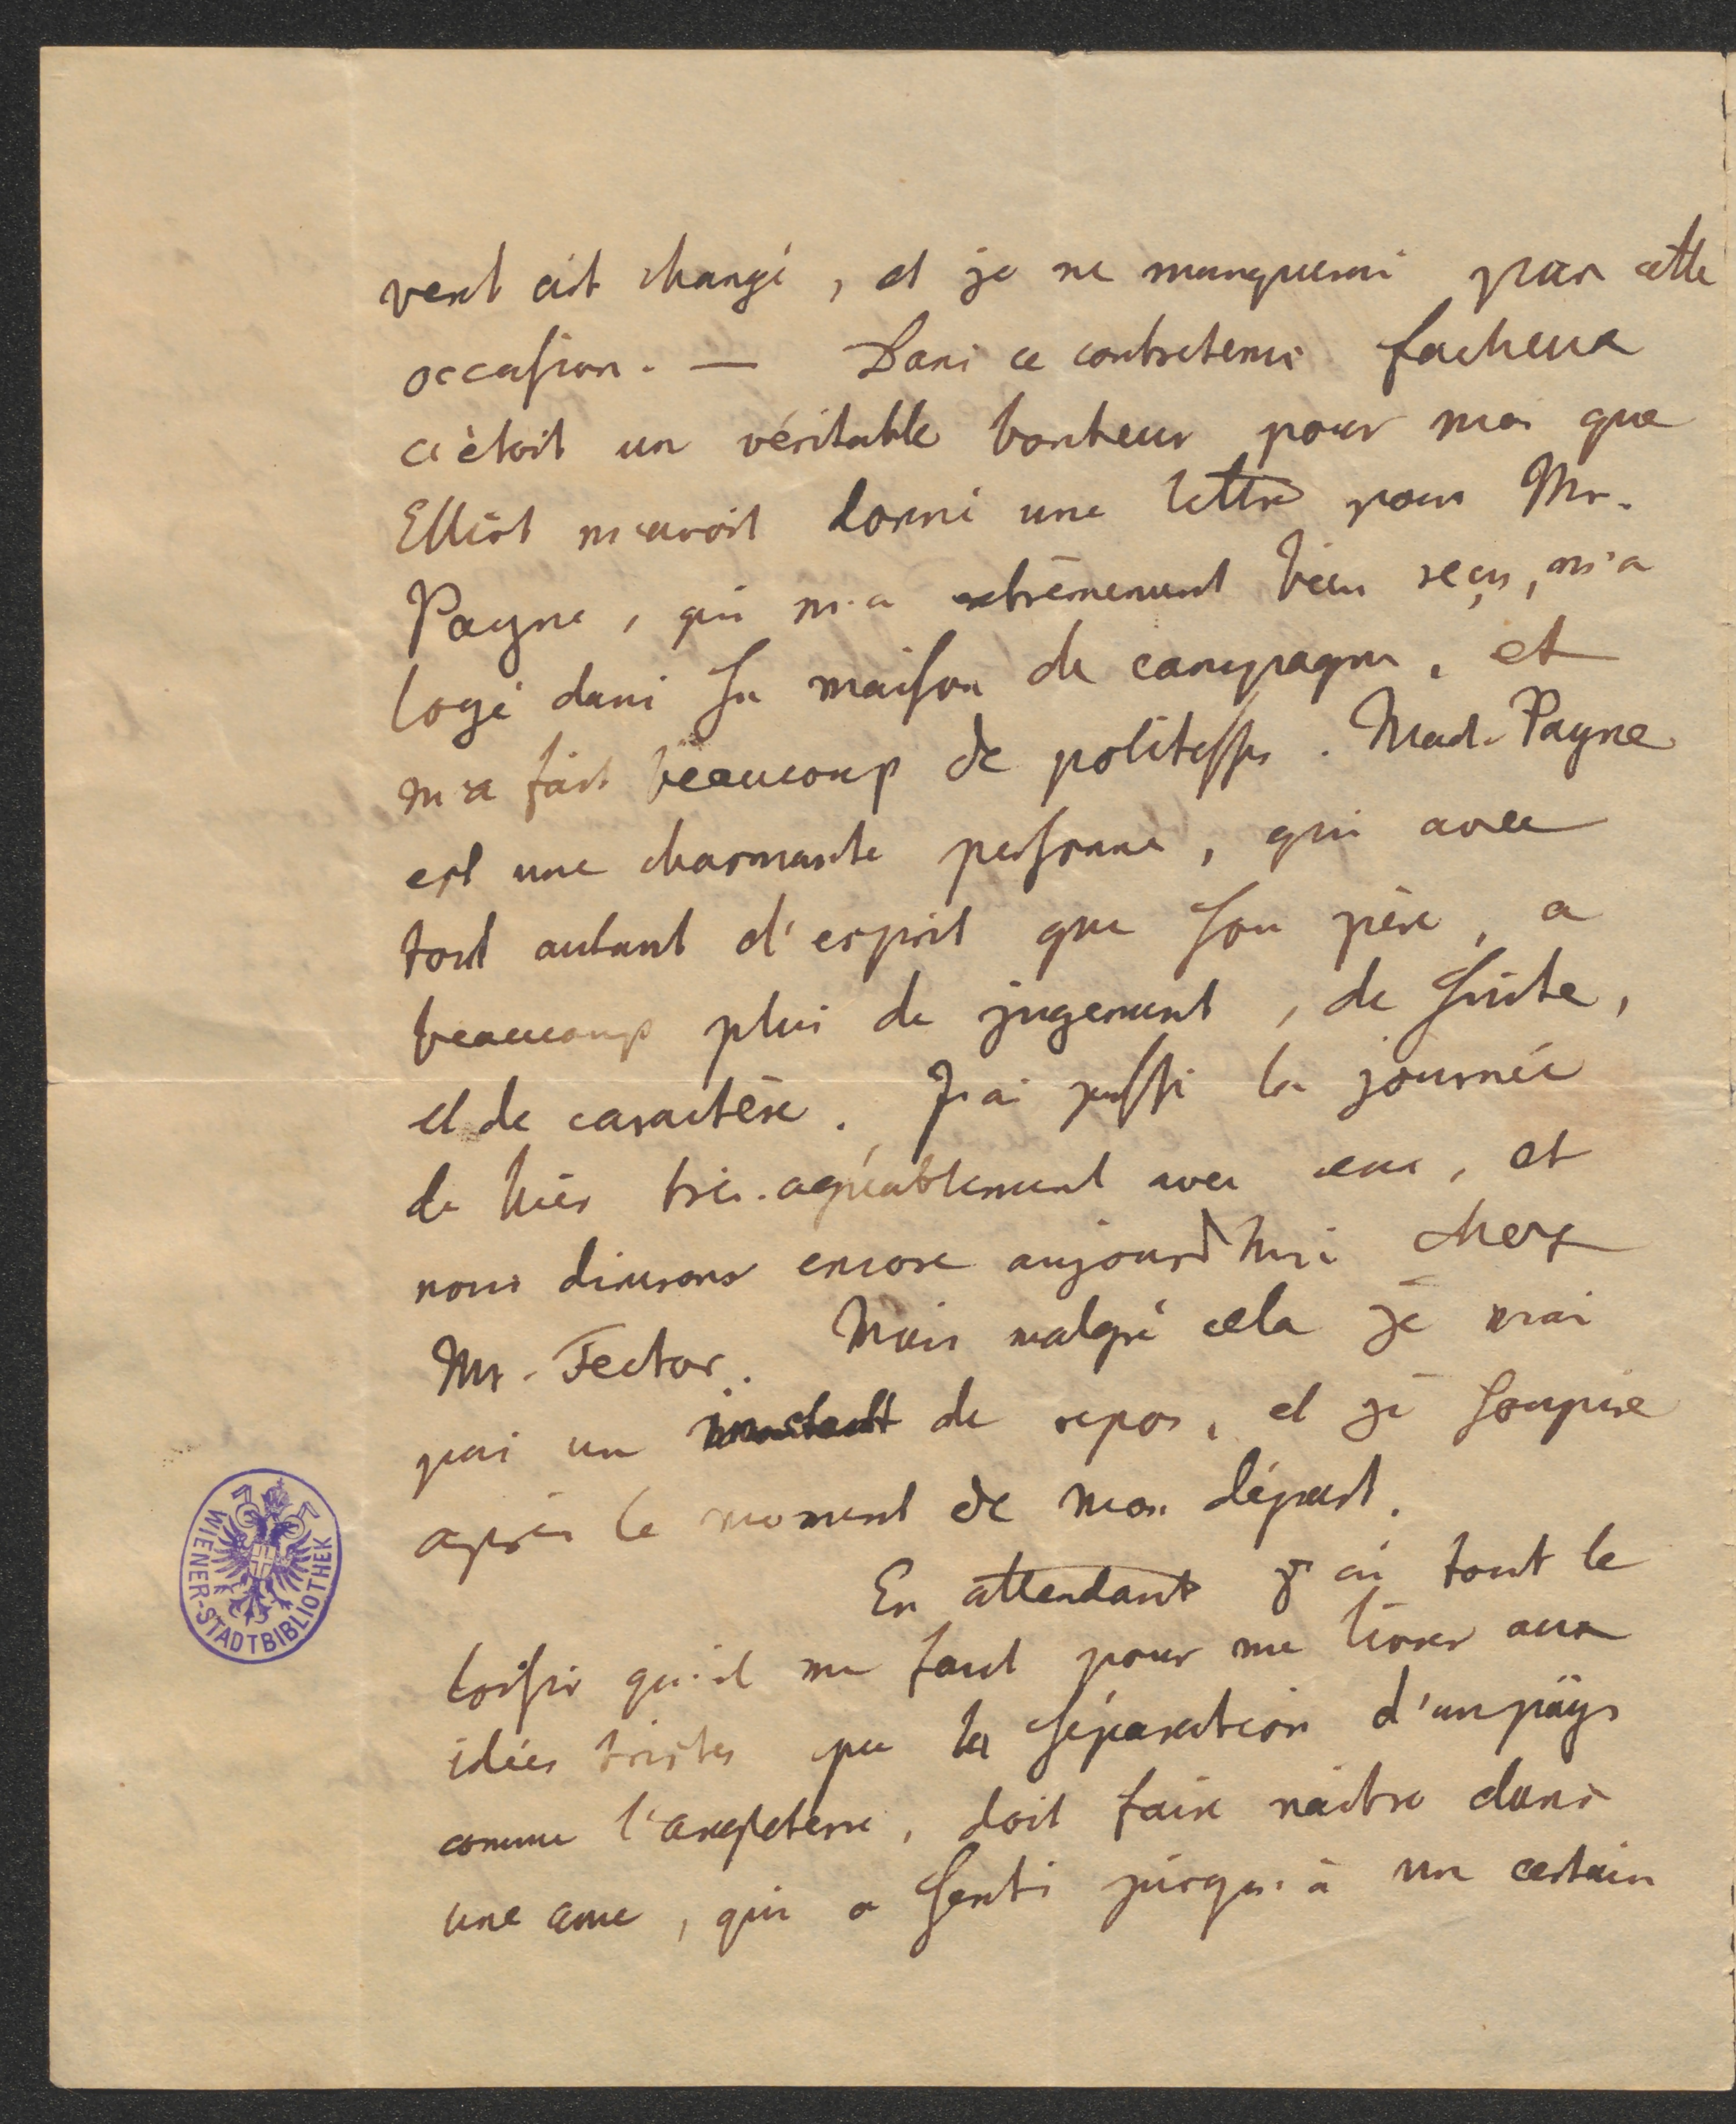 vent ait changé, et je ne manquerai pas cette
occasion. — Dans ce contretems facheux
c'étoit un véritable bonheur pour moi que
Elliot m'avoit donné une lettre pour Mr.
Payne, qui m'a extrèmement bien reçu, m'a
logé dans sa maison de campagne, et
m'a fait beaucoup de politesses. Mad. Payne
est une charmante personne, qui avec
tout autant d'esprit que son père, a
beaucoup plus de jugement, de suite,
et de caractère. J'ai passé la journée
de hier très-agréablement avec eux, et
nous dinerons encore aujourd'hui chez
Mr. Fector. Mais malgré cela je n'ai
pas un instant de repos, et je soupire
après le moment de mon départ.
En attendant j'ai tout le
loisir qu'il me faut pour me livrer aux
idées tristes que la séparation d'un päys
comme l'angleterre, doit faire naitre dans
une ame, qui a senti jusqu'à un certain
WIENER-STADTBIBLIOTHEK